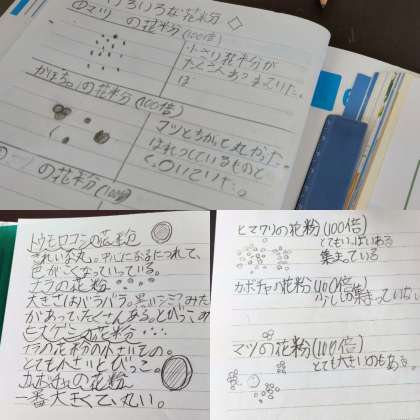 いろいろな花粉
①マツの花粉(100倍)
小さい花粉が
たくさんあつまっていた。
かぼちゃの花粉(100倍)
マツとちがって丸かった。
の花粉(100倍)
トウモロコシの花粉
きれいな丸。中心になるにつれて、
色がこくなっていっている。
ナラの花粉
大きさはバラバラ。黒いゴミみた
があって、たくさんある。とびっこの
ヒメゲンの花粉
イラの花粉の小さいもの。
とても小さいとびっこ。
カボチャの花粉
一番大きくて丸い。
ヒマワリの花粉(100倍)
とてもいっぱいある
集まっている
カボチャの花粉(100倍)
少ししか集まっていない
マツの花粉(100倍)
とても大きいのもある。